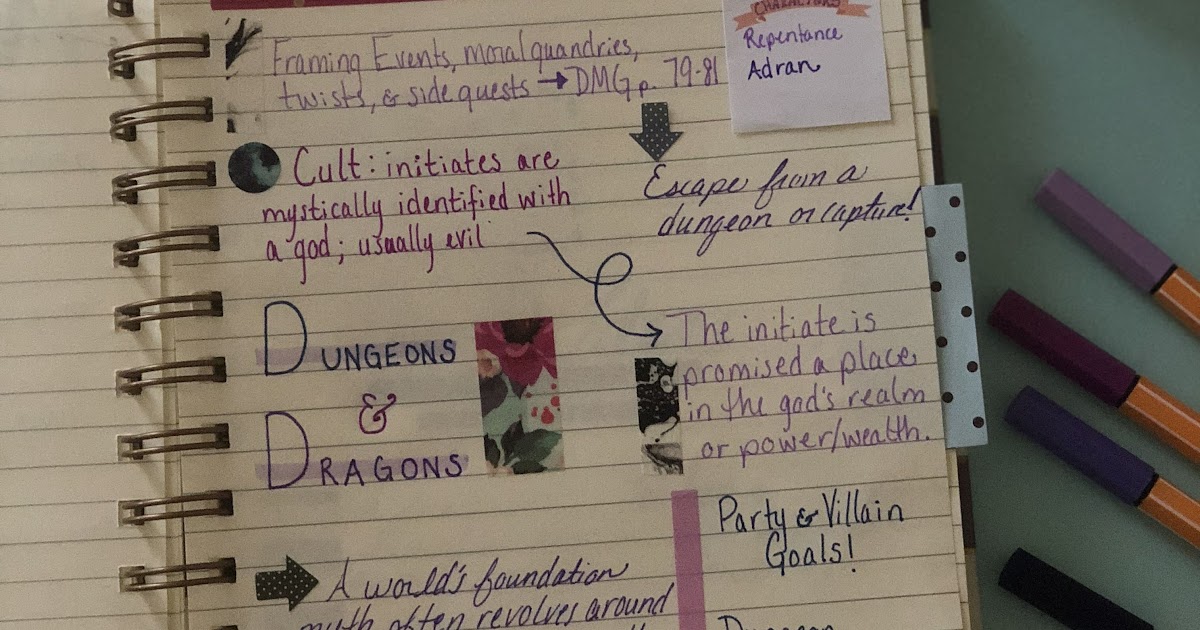 CHARACTERS
Repentance
Adran
Framing Events, moral quandries,
twists, & side quests → DMG p. 79-81
Escape from a
dungeon or capture!
Cult: initiates are
mystically identified with
a god; usually evil
The initiate is
promised a place
in the god's realm
or power/wealth.
DUNGEONS
&
DRAGONS
Party & Villain
Goals!
A world's foundation
myth often revolves around